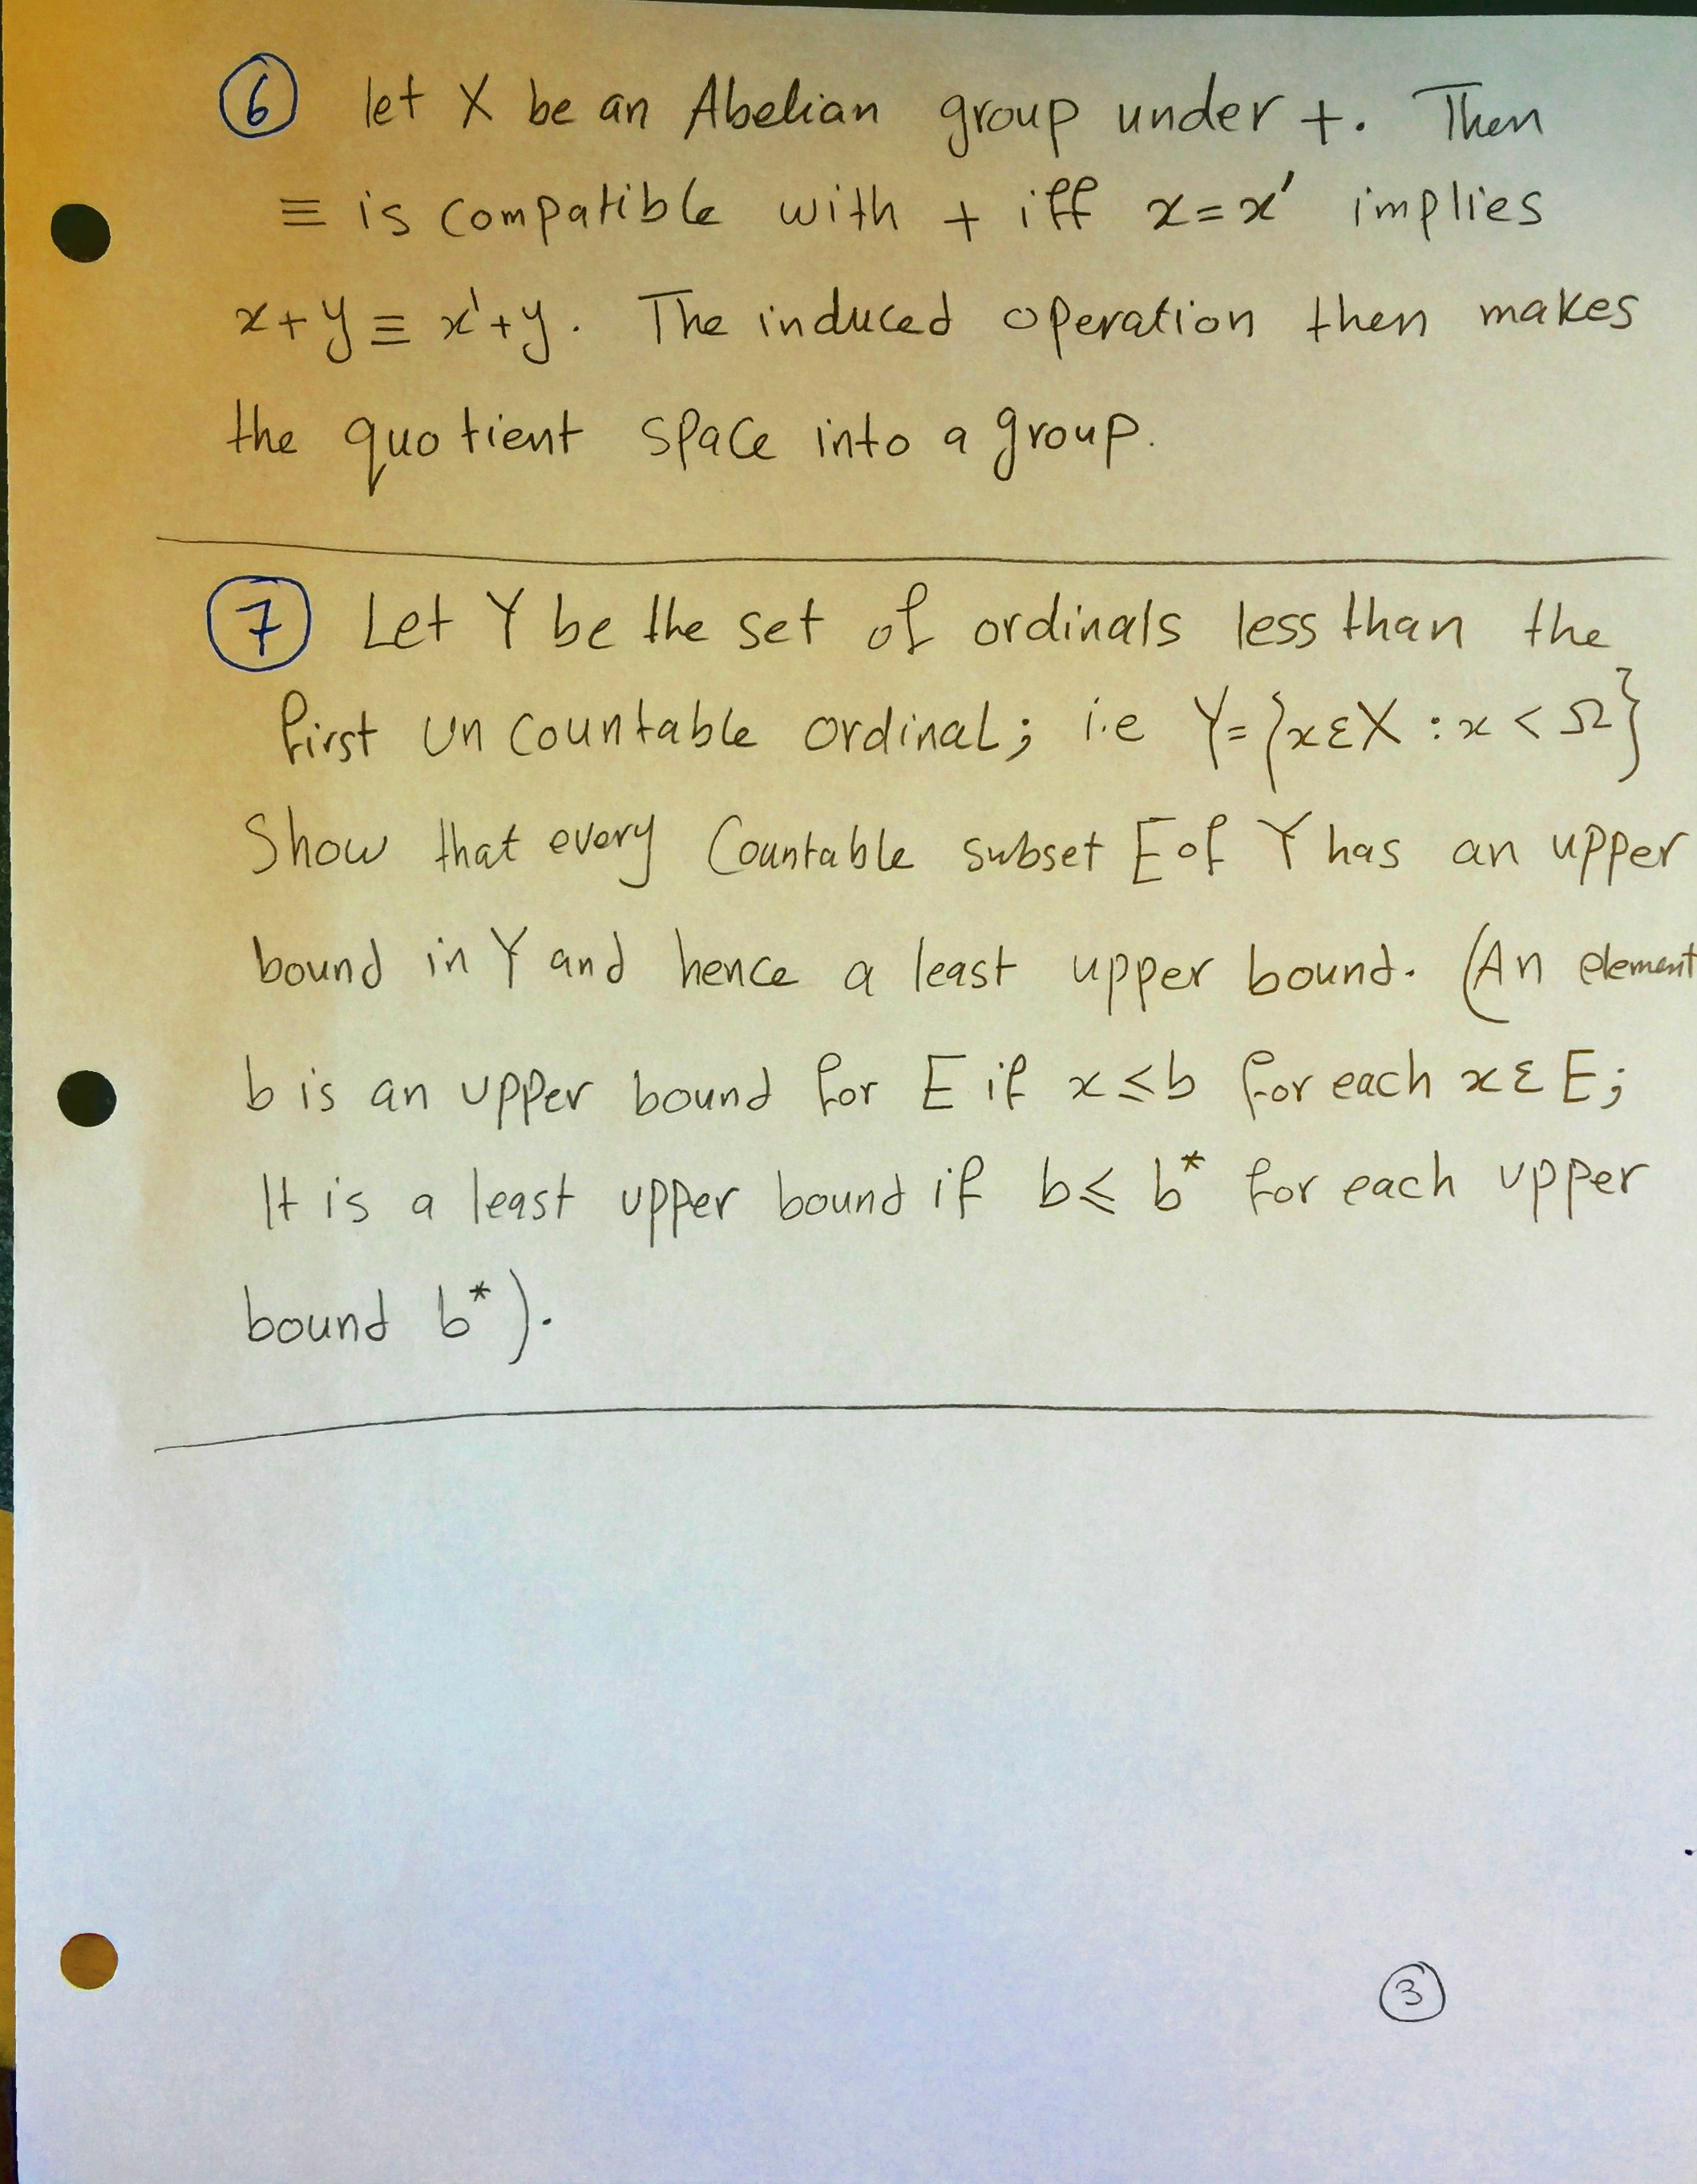 6 let X be an Abelian group under +. Then
≡ is compatible with + iff x=x' implies
x+y ≡ x'+y. The induced operation then makes
the quotient space into a group.
7 Let Y be the set of ordinals less than the
first uncountable ordinal; i.e Y={xεX : x < Ω}
Show that every Countable subset E of Y has an upper
bound in Y and hence a least upper bound. (An element
b is an upper bound for E if x≤b for each xεE;
It is a least upper bound if b≤ b* for each upper
bound b*).
3